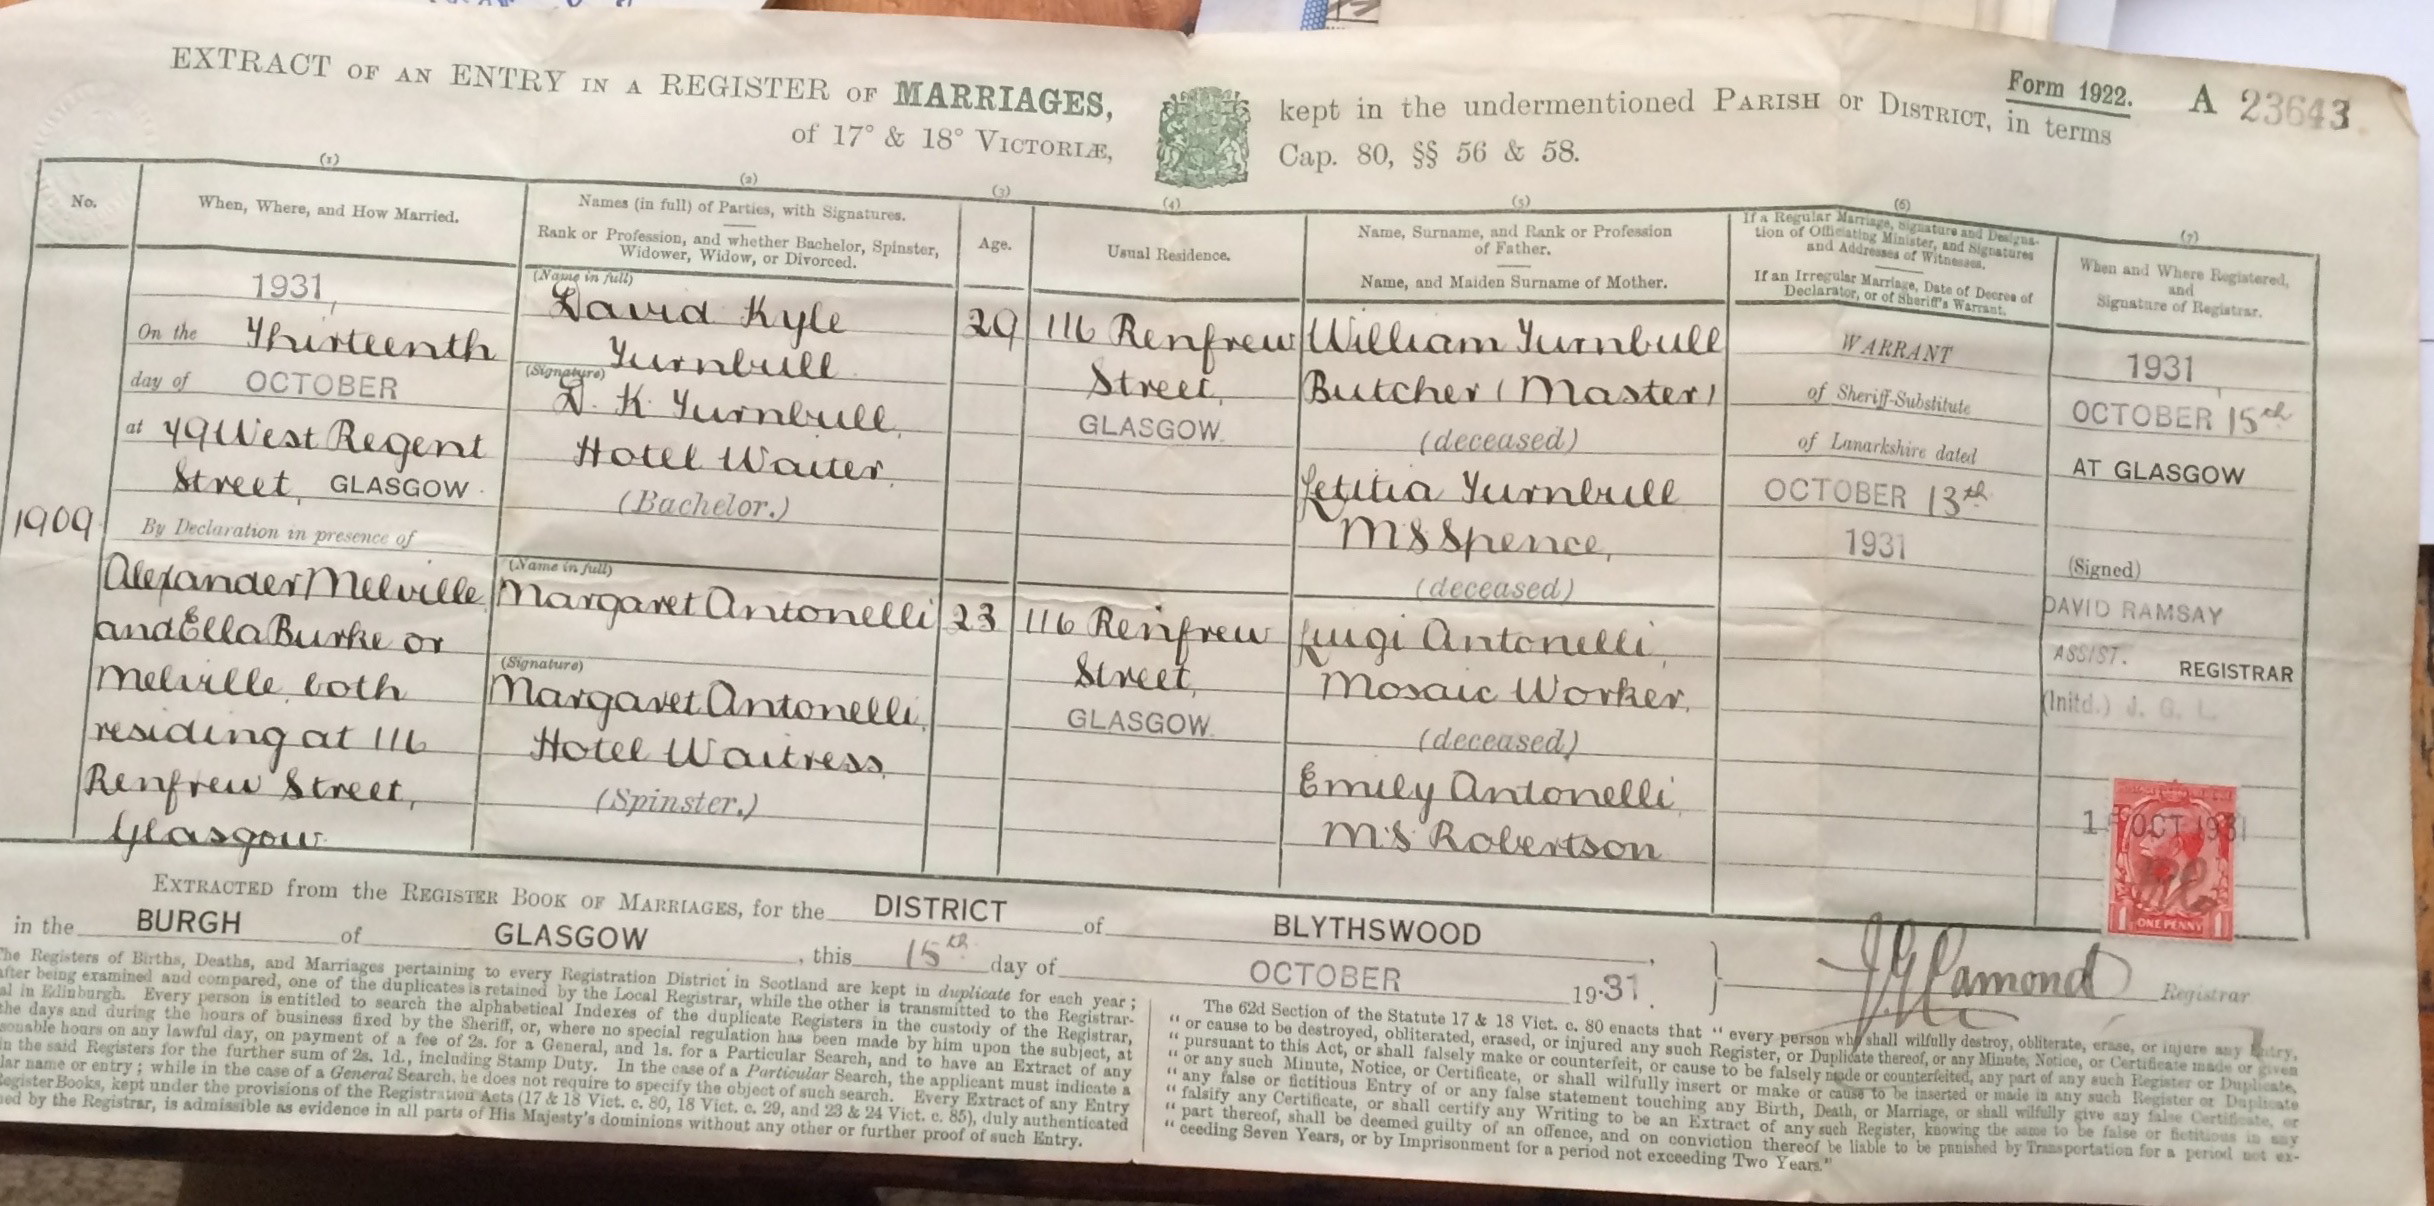 EXTRACT OF AN ENTRY IN A REGISTER OF MARRIAGES,
of 17° & 18° VICTORIÆ,
kept in the undermentioned PARISH or DISTRICT, in terms
Cap. 80, §§ 56 & 58.
Form 1922.
A 23643
No.
(1)
When, Where, and How Married.
(2)
Names (in full) of Parties, with Signatures.
Rank or Profession, and whether Bachelor, Spinster,
Widower, Widow, or Divorced.
(3)
Age.
(4)
Usual Residence.
(5)
Name, Surname, and Rank or Profession
of Father.
Name, and Maiden Surname of Mother.
(6)
If a Regular Marriage, Signature and Designa-
tion of Officiating Minister, and Signatures
and Addresses of Witnesses.
If an Irregular Marriage, Date of Decree of
Declarator, or of Sheriff's Warrant.
(7)
When and Where Registered,
and
Signature of Registrar.
1909
1931,
On the Thirteenth
day of OCTOBER
at 79 West Regent
Street, GLASGOW.
By Declaration in presence of
Alexander Melville
and Ella Burke or
Melville, both
residing at 116
Renfrew Street,
Glasgow.
(Name in full)
David Kyle
Turnbull
(Signature)
D. K. Turnbull,
Hotel Waiter,
(Bachelor.)
(Name in full)
Margaret Antonelli
(Signature)
Margaret Antonelli,
Hotel Waitress,
(Spinster.)
29
23
116 Renfrew
Street,
GLASGOW.
116 Renfrew
Street,
GLASGOW.
William Turnbull
Butcher (Master)
(deceased)
Letitia Turnbull
M.S Spence,
(deceased)
Luigi Antonelli,
Mosaic Worker,
(deceased)
Emily Antonelli,
M.S Robertson
WARRANT
of Sheriff-Substitute
of Lanarkshire dated
OCTOBER 13th
1931
1931,
OCTOBER 15th
AT GLASGOW
(Signed)
DAVID RAMSAY
ASSIST. REGISTRAR
(Initd.) J. G. L.
OCT 1931
1 ONE PENNY 1
EXTRACTED from the REGISTER BOOK OF MARRIAGES, for the DISTRICT of BLYTHSWOOD
in the BURGH of GLASGOW, this 15th day of OCTOBER 1931.
Registrar
The Registers of Births, Deaths, and Marriages pertaining to every Registration District in Scotland are kept in duplicate for each year;
after being examined and compared, one of the duplicates is retained by the Local Registrar, while the other is transmitted to the Registrar-
al in Edinburgh. Every person is entitled to search the alphabetical Indexes of the duplicate Registers in the custody of the Registrar,
the days and during the hours of business fixed by the Sheriff, or, where no special regulation has been made by him upon the subject, at
sonable hours on any lawful day, on payment of a fee of 2s. for a General, and 1s. for a Particular Search, and to have an Extract of any
in the said Registers for the further sum of 2s. 1d., including Stamp Duty. In the case of a Particular Search, the applicant must indicate a
lar name or entry; while in the case of a General Search, he does not require to specify the object of such search. Every Extract of any Entry
Register Books, kept under the provisions of the Registration Acts (17 & 18 Vict. c. 80, 18 Vict. c. 29, and 23 & 24 Vict. c. 85), duly authenticated
ned by the Registrar, is admissible as evidence in all parts of His Majesty's dominions without any other or further proof of such Entry.
The 62d Section of the Statute 17 & 18 Vict. c. 80 enacts that "every person who shall wilfully destroy, obliterate, erase, or injure any Entry,
"or cause to be destroyed, obliterated, erased, or injured any such Register, or Duplicate thereof, or any Minute, Notice, or Certificate made or given
"pursuant to this Act, or shall falsely make or counterfeit, or cause to be falsely made or counterfeited, any part of any such Register or Duplicate,
"or any such Minute, Notice, or Certificate, or shall wilfully insert or make or cause to be inserted or made in any such Register or Duplicate
"any false or fictitious Entry of or any false statement touching any Birth, Death, or Marriage, or shall wilfully give any false Certificate, or
"falsify any Certificate, or shall certify any Writing to be an Extract of any such Register, knowing the same to be false or fictitious in any
"part thereof, shall be deemed guilty of an offence, and on conviction thereof be liable to be punished by Transportation for a period not ex-
"ceeding Seven Years, or by Imprisonment for a period not exceeding Two Years."